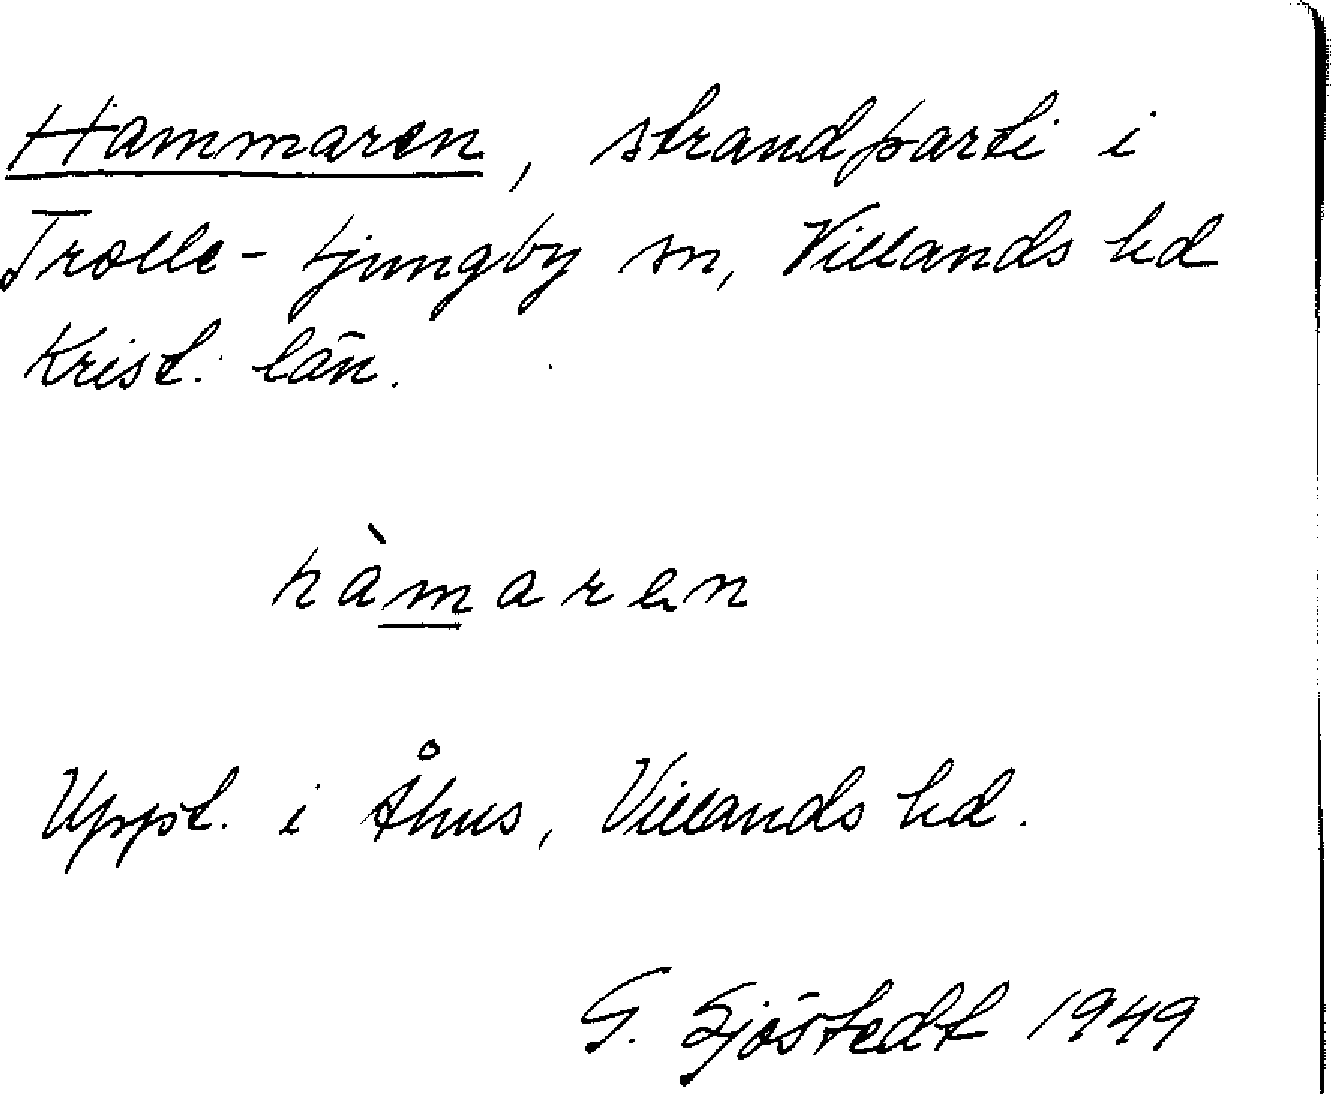 Hammaren, strandparti i
Trolle-Ljungby sn, Villands hd
Krist. län.
hàmaren
Uppt. i Åhus, Villands hd.
G. Sjöstedt 1949